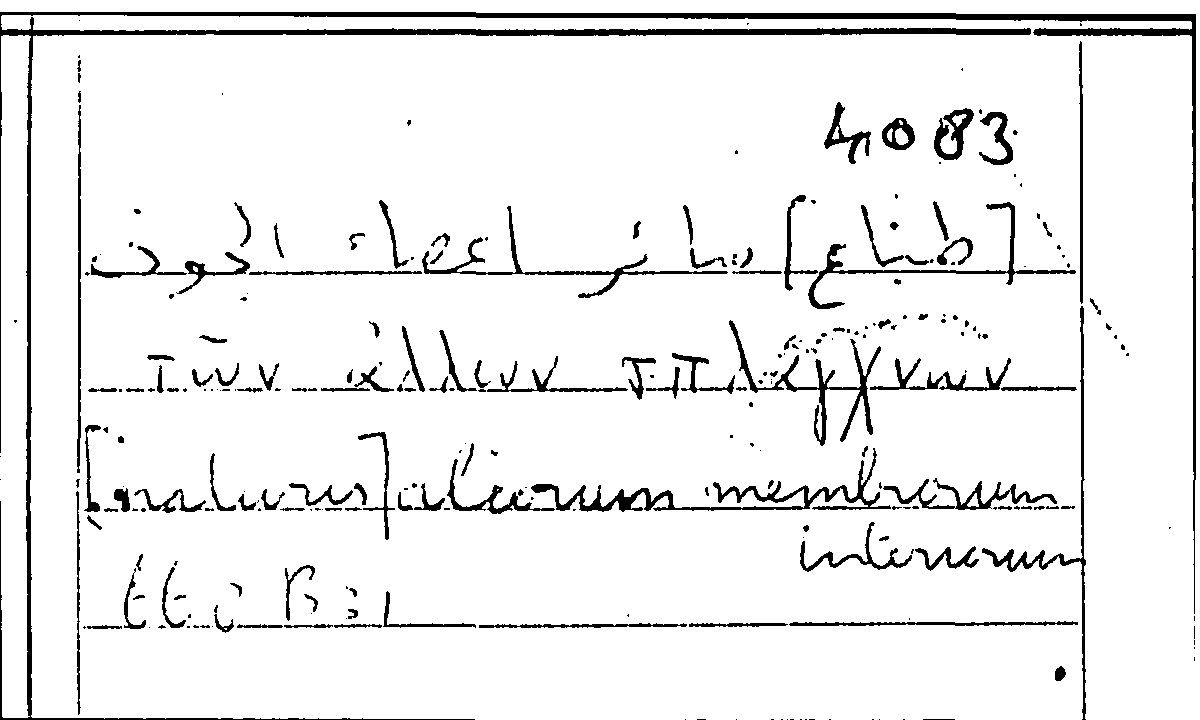 4083
[طباع] سائر اعضاء الجوف
τῶν ἄλλων σπλαγχνων
[naturis] aliorum membrorum
interiorum
B 31